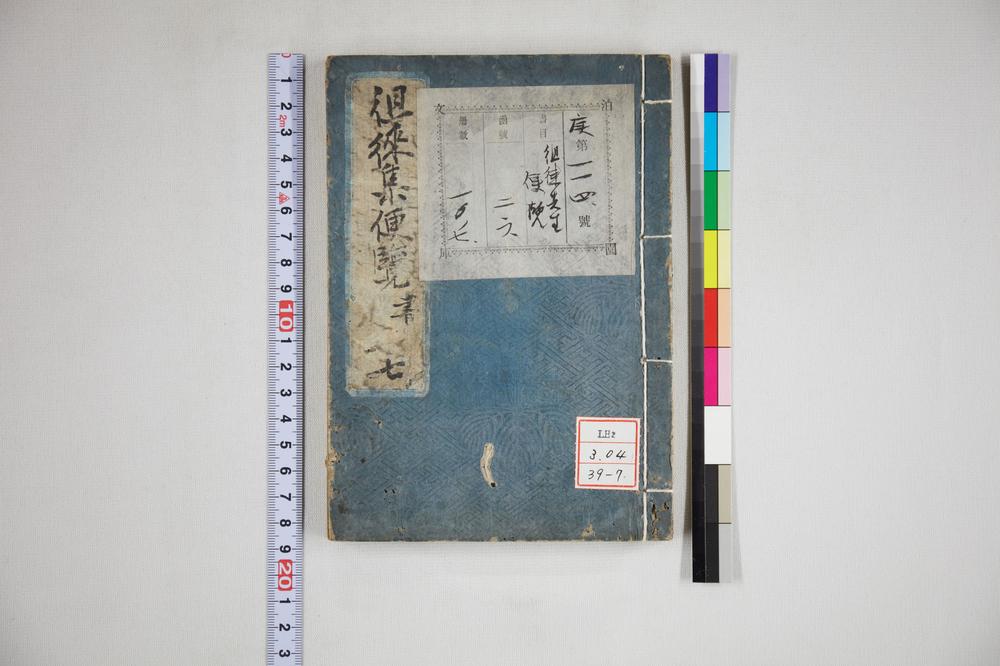 徂徠集便覧 書
七
泊園文庫
戻第一一四號
書目 徂徠先生
便覧
番號 二六
冊數 一の七
LH2
3.04
39-7.
1
2
2m
3
4
5
6
7
8
9
10
1
2
3
4
5
6
7
8
9
20
1
2
3